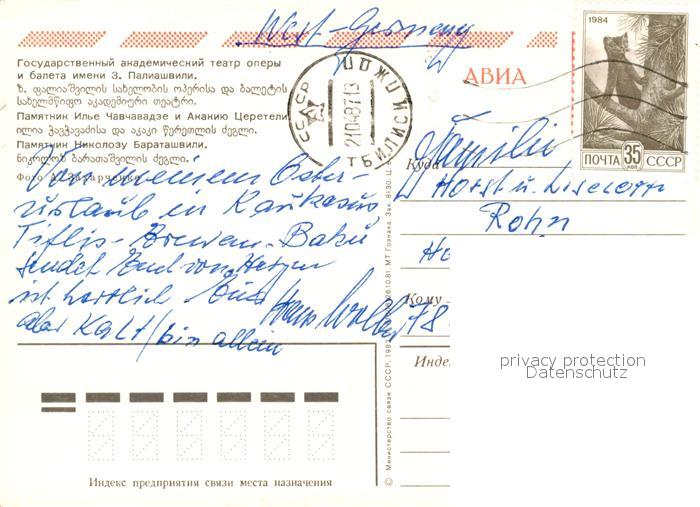 West-Germany
1984
Государственный академический театр оперы
и балета имени З. Палиашвили.
ზ. ფალიაშვილის სახელობის ოპერისა და ბალეტის
სახელმწიფო აკადემიური თეატრი.
АВИА
СССР
210487 13
ТБИЛИСИ
ПОЧТА 35 коп СССР
Памятник Илье Чавчавадзе и Акакию Церетели.
ილია ჭავჭავაძისა და აკაკი წერეთლის ძეგლი.
Памятник Николозу Бараташвили.
ნიკოლოზ ბარათაშვილის ძეგლი.
Фото А. Захарченко
Куда
Familie
Horst u. Liselotte
Rohn
Von meinem Oster-
urlaub in Kaukasus
Tiflis-Erewan-Baku
sendet Euch von Herzen
ist herrlich
aber Kalt/bin allein
Кому
78
Индекс
privacy protection
Datenschutz
Индекс предприятия связи места назначения
© Министерство связи СССР. 198
МТ Гознака. Зак. 8130